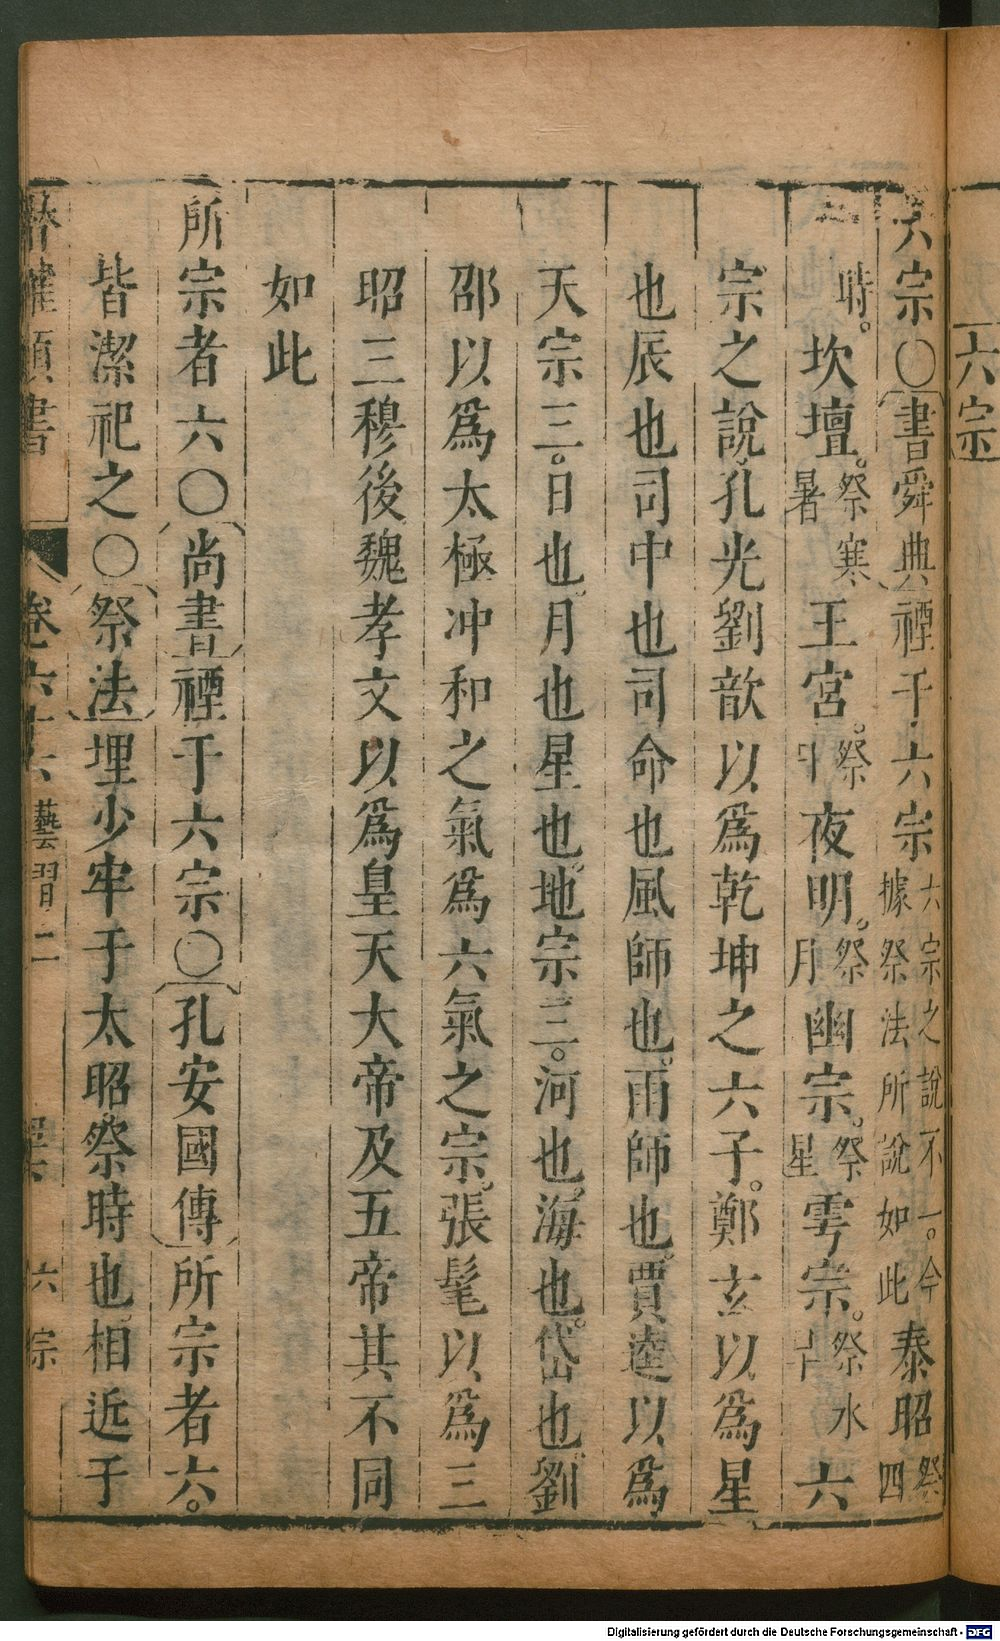 六宗
六宗〇書舜典禋于六宗六宗之說不一。今據祭法所說如此泰昭祭四
時。坎壇。祭寒暑王宮。祭日夜明。祭月幽宗。祭星雩宗。祭水旱六
宗之說。孔光劉歆以爲乾坤之六子。鄭玄以爲星
也辰也司中也司命也風師也。雨師也。賈逵以爲
天宗三。日也。月也星也。地宗三。河也。海也。岱也。劉
邵以爲太極冲和之氣爲六氣之宗。張髦以爲三
昭三穆後魏孝文以爲皇天大帝及五帝其不同
如此
所宗者六〇尚書禋于六宗〇孔安國傳所宗者六。
皆潔祀之〇祭法埋少牢于太昭祭時也。相近于
類書 卷六十六 藝習二 六宗
Digitalisierung gefördert durch die Deutsche Forschungsgemeinschaft - DFG